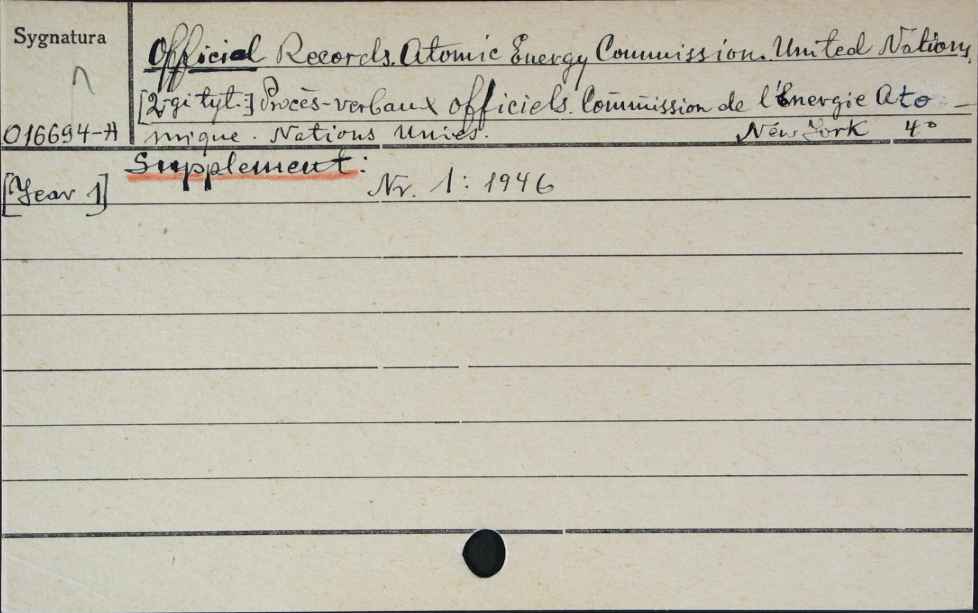 Sygnatura
Official Records. Atomic Energy Commission. United Nations.
[2-gi tyt.] Procès-verbaux officiels. Commission de l'Énergie Ato-
016694-A mique. Nations Unies. New York 4°
Supplement:
[Year 1] Nr. 1: 1946